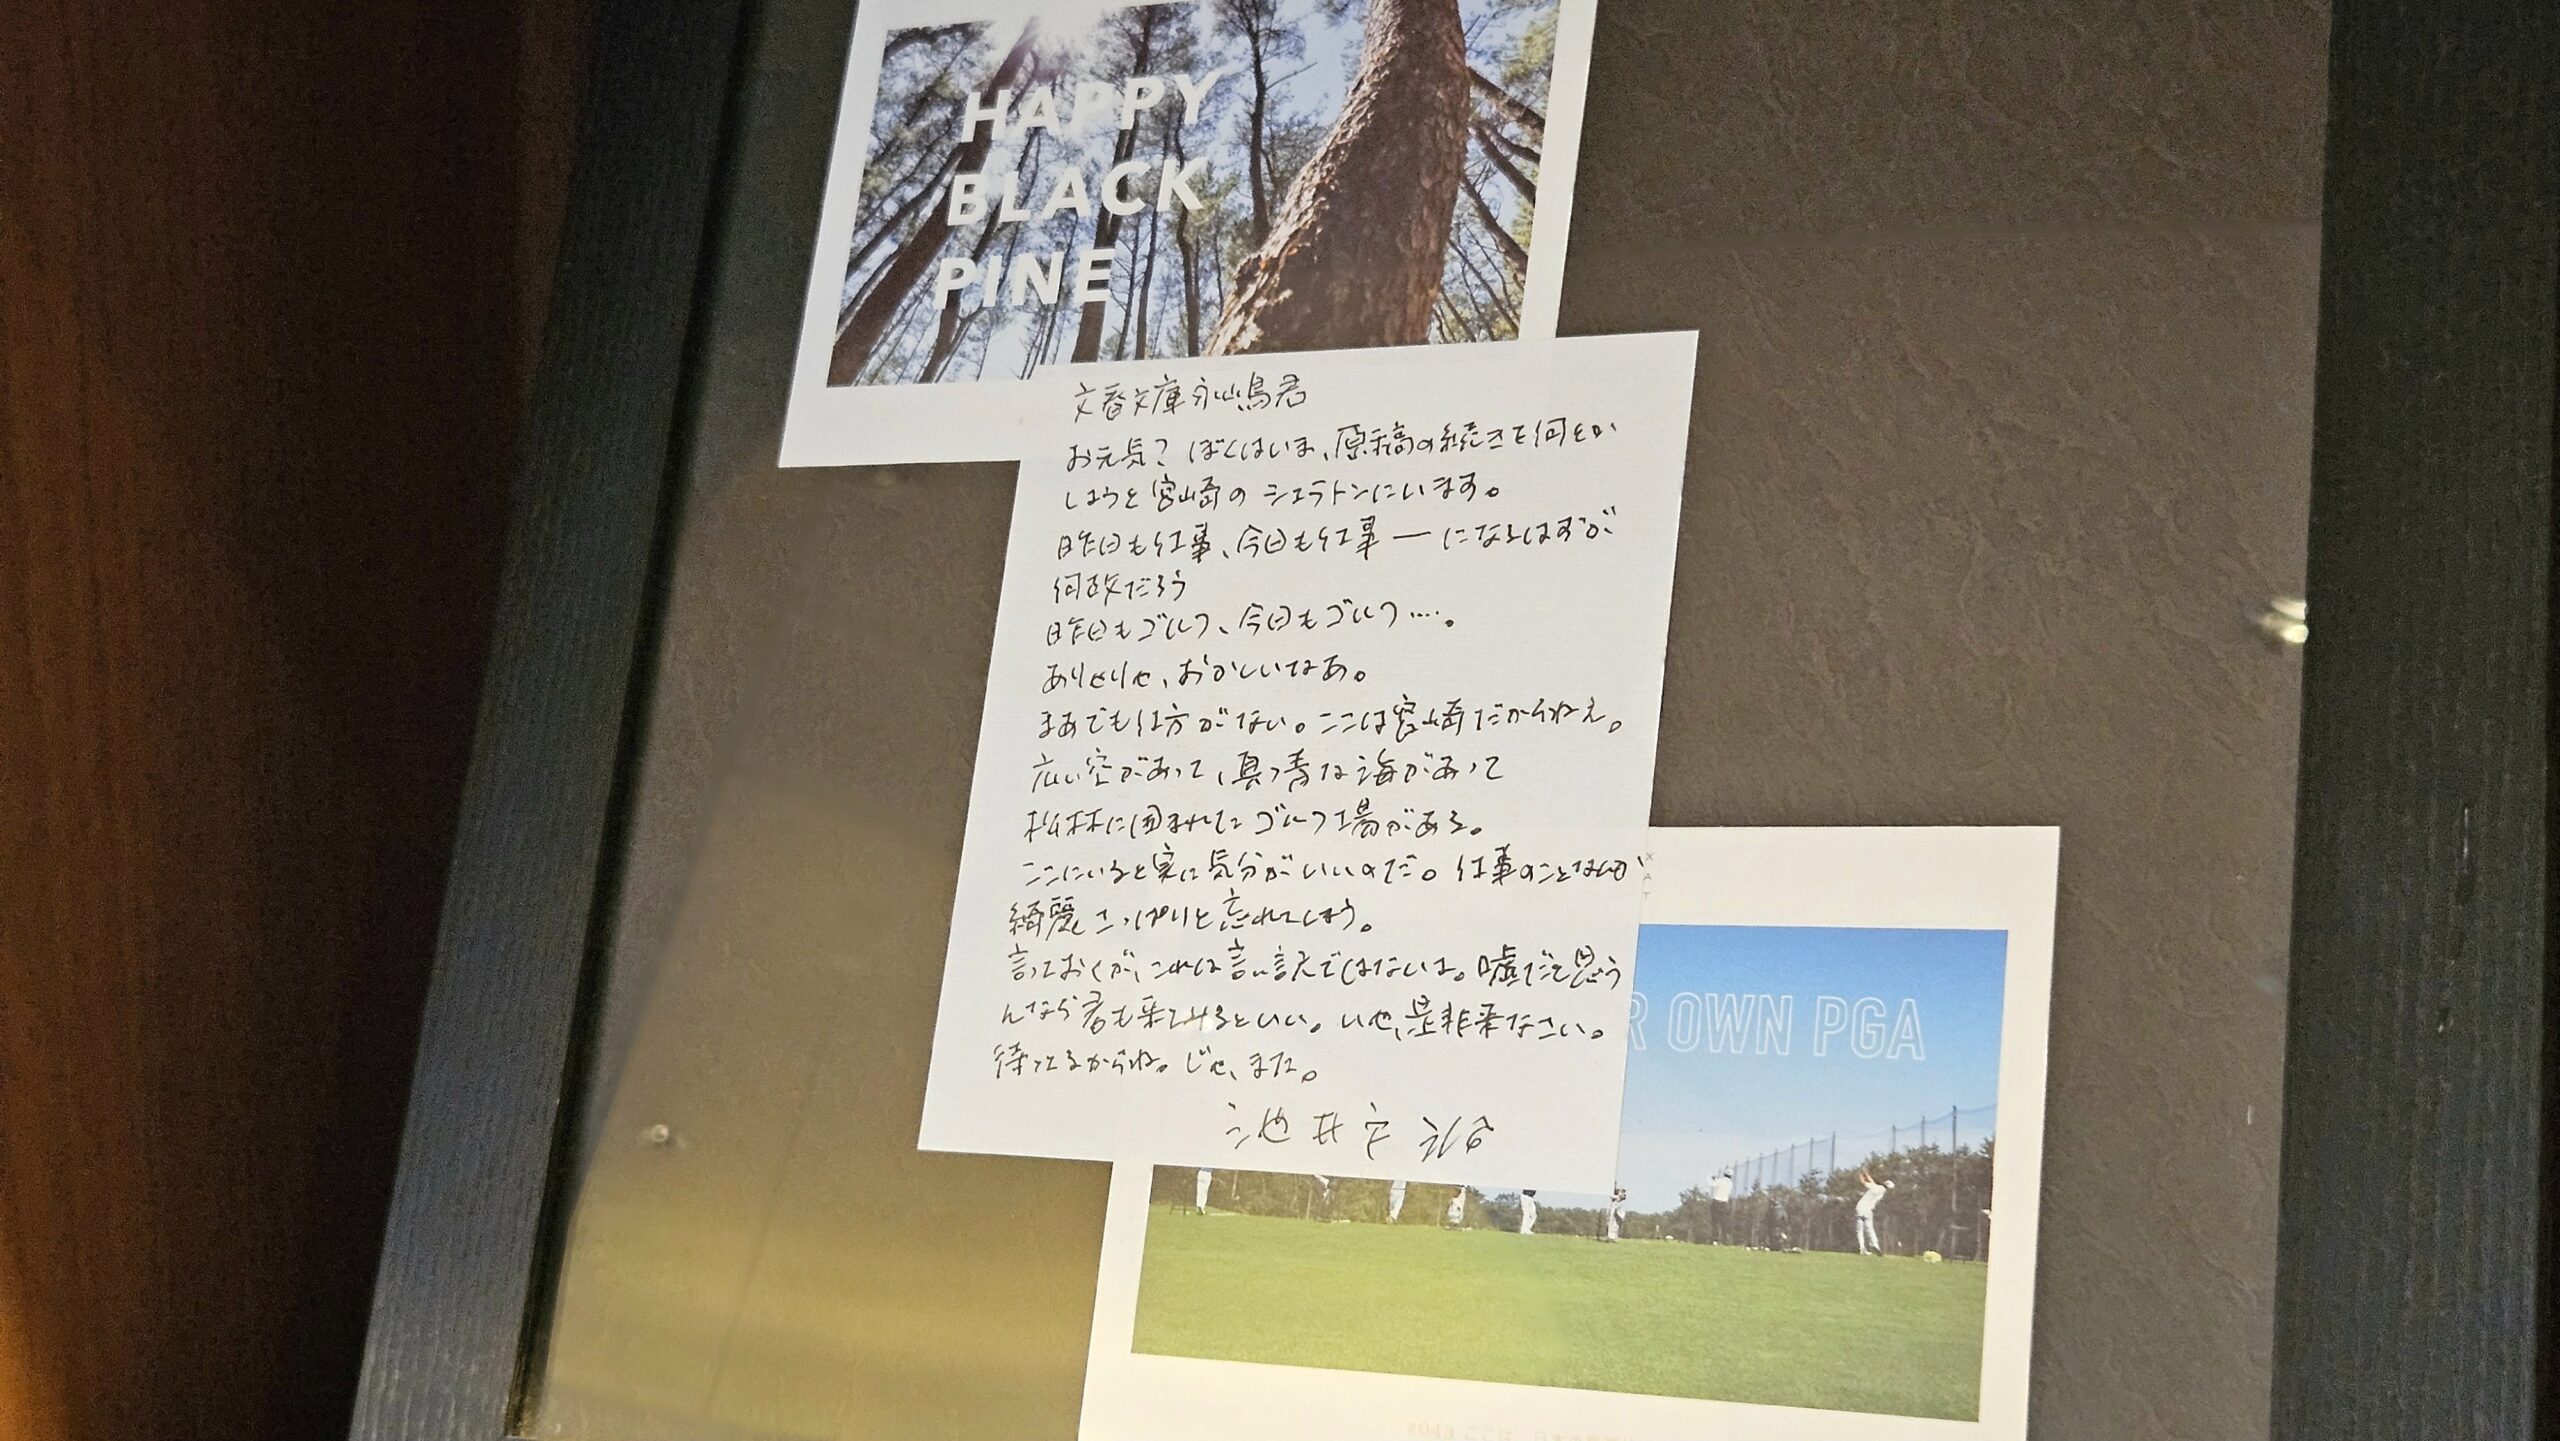 HAPPY
BLACK
PINE
文春文庫永嶋君
お元気？ ぼくはいま、原稿の続きを何とか
しようと宮崎のシェラトンにいます。
昨日も仕事、今日も仕事ーになるはずが
何故だろう
昨日もゴルフ、今日もゴルフ….。
ありゃりゃ、おかしいなあ。
まあでも仕方がない。ここは宮崎だからねえ。
広い空があって、真っ青な海があって
松林に囲まれたゴルフ場がある。
ここにいると実に気分がいいのだ。仕事のことなんか
綺麗さっぱりと忘れてしまう。
言っておくが、これは言い訳ではないよ。嘘だと思う
んなら君も来てみるといい。いや、是非来なさい。
待ってるからね。じゃ、また。
池井戸潤
R OWN PGA
#043 ここは、日本の